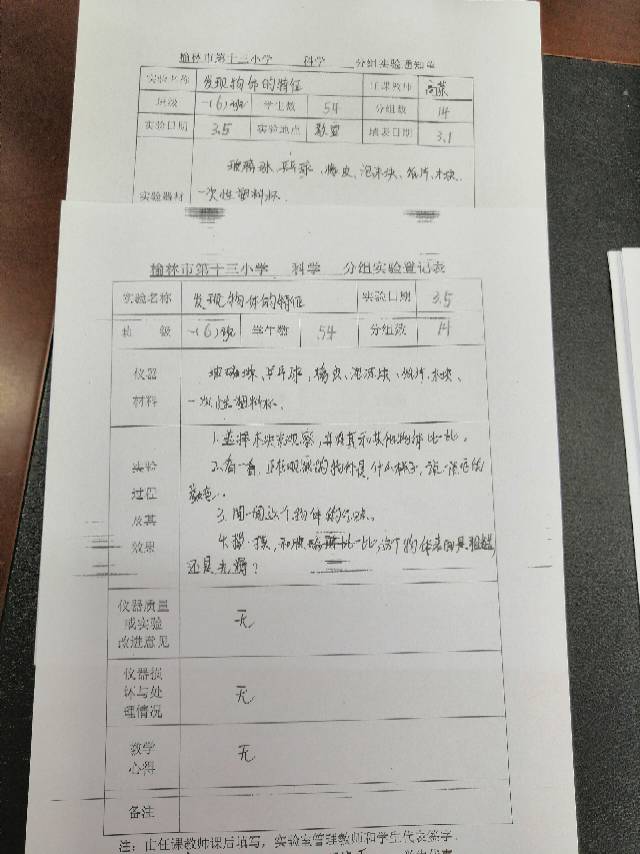 榆林市第十三小学 科学 分组实验通知单
实验名称 发现物体的特征 任课教师
班级 一(6)班 学生数 54 分组数 14
实验日期 3.5 实验地点 教室 填表日期 3.1
玻璃球、乒乓球、橡皮、泡沫块、纸片、木块、
实验器材 一次性塑料杯.
榆林市第十三小学 科学 分组实验登记表
实验名称 发现物体的特征 实验日期 3.5
班 级 一(6)班 学生数 54 分组数 14
仪器 玻璃球、乒乓球、橡皮、泡沫块、纸片、木块、
材料 一次性塑料杯.
1.选择木块来观察,并将其和其他物体比一比.
实验 2.看一看,正在观察的物体是什么样子,说一说它的
过程 颜色.
及其 3.闻一闻这个物体的气味.
效果 4.摸一摸,和玻璃球比一比,这个物体表面是粗糙
还是光滑?
仪器质量
或实验 无
改进意见
仪器损
坏与处 无
理情况
教学 无
心得
备注
注:由任课教师课后填写,实验室管理教师和学生代表签字.